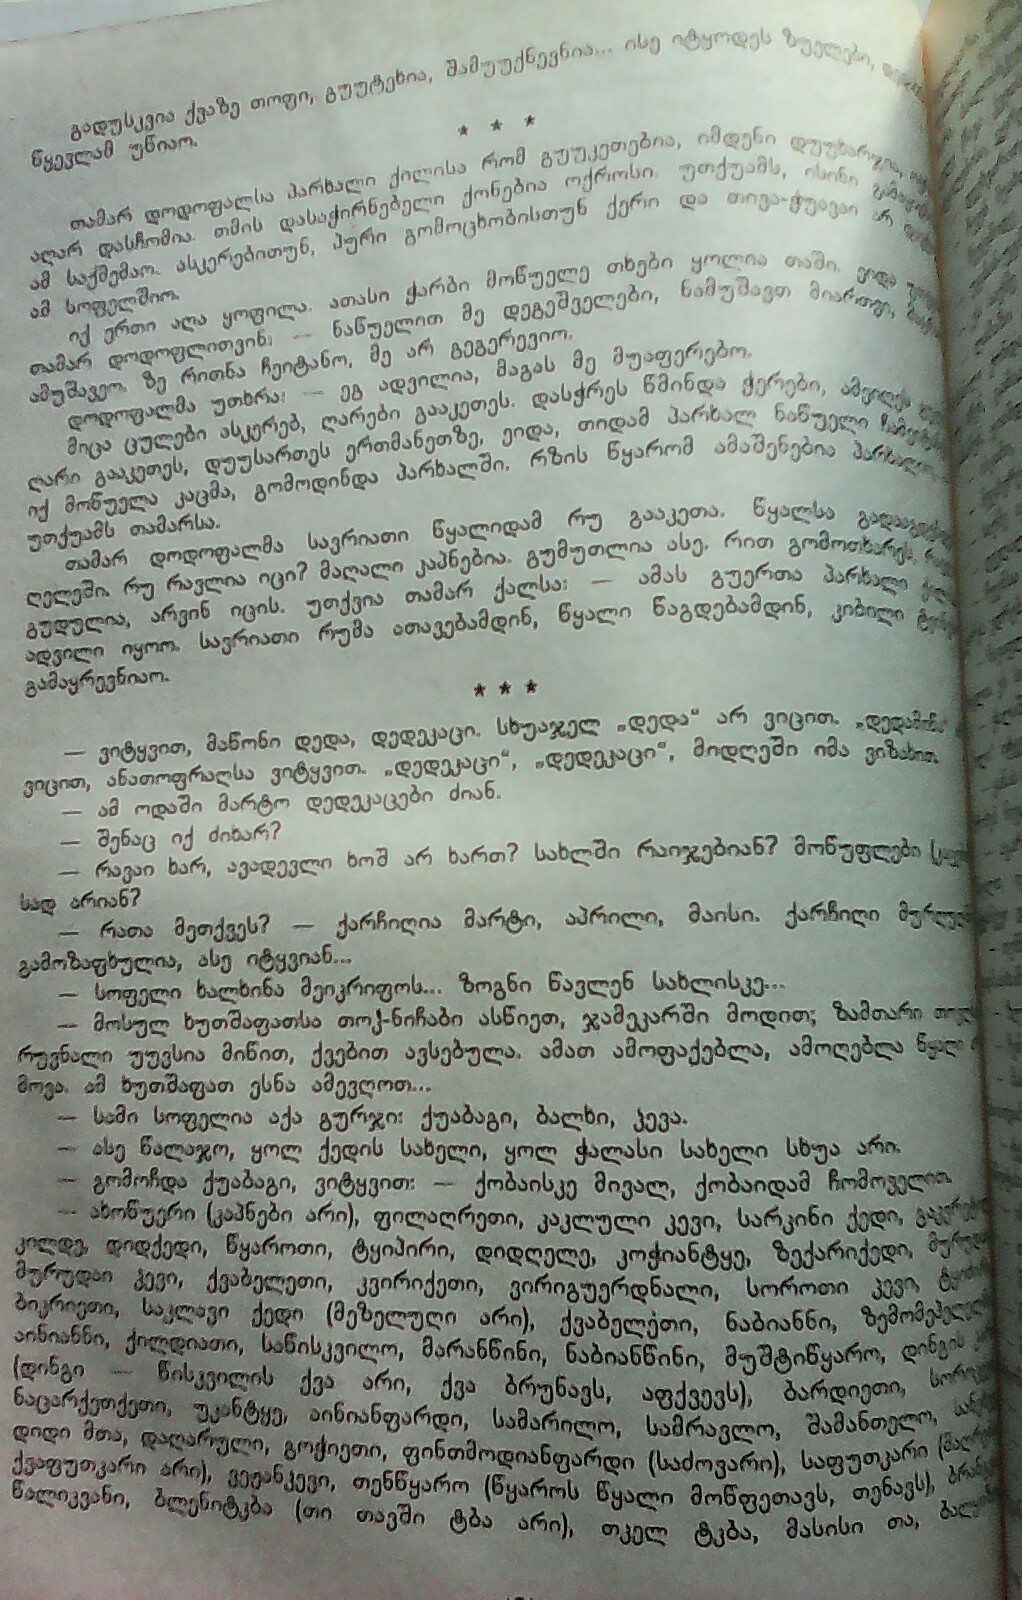 გადუსკვია ქვაზე თოფი, გუუტეხია, შამუუქნევნია... ისე იტყოდეს ზუელები,
წყევლამ უწიაო.
* * *
თამარ დოდოფალსა პარხალი ქილისა რომ გუუკეთებია, იმდენი დუუხარჯია,
აღარ დასჩომია. თმის დასაჭირნებელი ქონებია ოქროსი. უთქუამს, ისინი
ამ საქმემაო. ასკერებითუნ, პური გომოცხობისთუნ ქერი და თივა-ჭუავაი არ
ამ სოფელშიო.
იქ ერთი აღა ყოფილა. ათასი ჭარბი მოწუელე თხები ყოლია თაში. ეიდა
თამარ დოდოფლითვინ: — ნაწუელით მე დეგეშველები, ნამუშავთ მიართვი,
ამუშავეო. ზე რითნა ჩეიტანო, მე არ გეგერევიო.
დოდოფალმა უთხრა: — ეგ ადვილია, მაგას მე მუაფერებო.
მიცა ცულები ასკერებ, ღარები გააკეთეს. დასჭრეს წმინდა ჭერები,
ღარი გააკეთეს, დუუსართეს ერთმანეთზე, ეიდა, თიდამ პარხალ ნაწუელი
იქ მოწუელა კაცმა, გომოდინდა პარხალში. რზის წყარომ ამაშენებია
უთქუამს თამარსა.
თამარ დოდოფალმა სავრიათი წყალიდამ რუ გააკეთა. წყალსა
ღელეში. რუ რავლია იცი? მაღალი კაპნებია. გუმუთლია ასე. რით გომოთხარეს,
გუდულია, არვინ იცის. უთქვია თამარ ქალსა: — ამას გუერთა პარხალი
ადვილი იყოო. სავრიათი რუმა ათავებამდინ, წყალი წაგდებამდინ, კიბილი
გამაყრევნიაო.
* * *
— ვიტყვით, მაწონი დედა, დედეკაცი. სხუაჯელ „დედა“ არ ვიცით.
ვიცით, ანათოფრაღსა ვიტყვით. „დედეკაცი“, „დედეკაცი“, მიდღეში იმა ვიზახით.
— ამ ოდაში მარტო დედეკაცები ძიან.
— შენაც იქ ძიხარ?
— რავაი ხარ, ავადევლი ხოშ არ ხართ? სახლში რაიჯებიან? მოწუფლები
სად არიან?
— რათა მეთქვეს? — ქარჩიღია მარტი, აპრილი, მაისი. ქარჩიღი
გამოზაფხულია, ასე იტყვიან...
— სოფელი ხალხინა მეიკრიფოს... ზოგნი წავლენ სახლისკე...
— მოსულ ხუთშაფათსა თოჴ-ნიჩაბი ასწიეთ, ჯამეკარში მოდით; ზამთარი
რუვნალი უუვსია მიწით, ქვებით ავსებულა. ამათ ამოფაქებლა, ამოღებლა
მოვა. ამ ხუთშაფათ ესნა ამევღოთ...
— სამი სოფელია აქა გურჯი: ქუაბაგი, ბალხი, ჴევა.
— ასე წალაჯო, ყოლ ქედის სახელი, ყოლ ჭალასი სახელი სხუა არი.
— გომოჩდა ქუაბაგი, ვიტყვით: — ქობაისკე მივალ, ქობაიდამ ჩომოველით.
— ახოწუერი (კაპნები არი), ფილაღრეთი, კაკლული ჴევი, სარკინი ქედი,
კილდე, დიდქედი, წყაროთი, ტყიპირი, დიდღელე, კოჭიანტყე, ზექარიქედი,
მურუდაი ჴევი, ქვაბელეთი, კვირიქეთი, ვირიგუერდნალი, სოროთი ჴევი,
ბიკრიეთი, საკლავი ქედი (მეზელული არი), ქვაბელეთი, ნაბიანნი,
აინიანნი, ქილდიათი, საწისკვილო, მარანწინი, ნაბიანწინი, მუშტიწყარო, დინგის
(დინგი — წისკვილის ქვა არი, ქვა ბრუნავს, აფქვევს), ბარდიეთი,
ნაცარქეთქეთი, უკანტყე, აინიანფარდი, სამარილო, სამრავლო, შამანთელო,
დიდი მთა, დაღარული, გოჭიეთი, ფინთმოდიანფარდი (საძოვარი), საფუთკარი
ქვაფუთკარი არი), ვეჟანკევი, თენწყარო (წყაროს წყალი მოწფეთავს, თენავს),
წალიკვანი, ბლენიტკბა (თი თავში ტბა არი), თკელ ტკბა, მასისი თა,